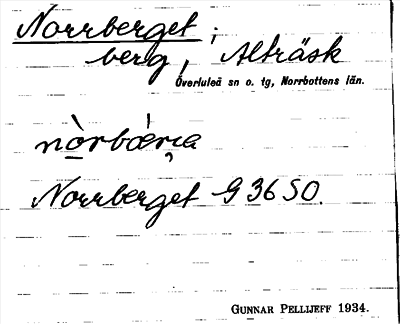 Norrberget ;
berg, Alträsk
Överluleå sn o. tg, Norrbottens län.
Norrberget G 36 SO.
GUNNAR PELLIJEFF 1934.